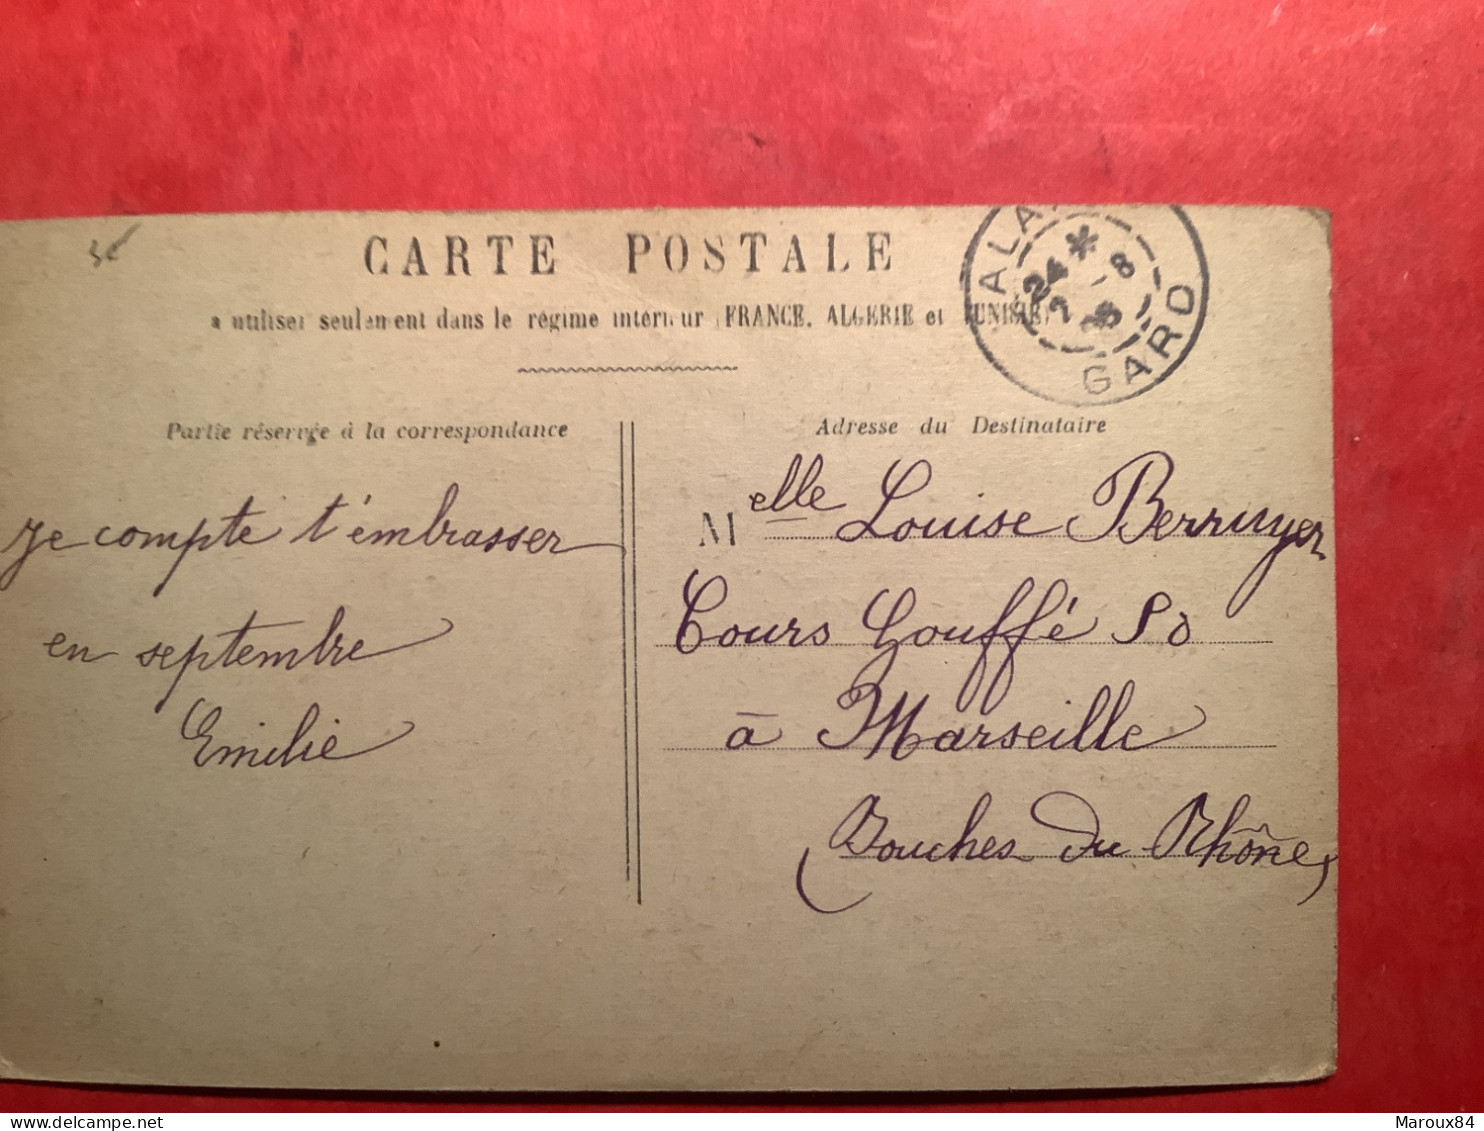 3€
CARTE POSTALE
à utiliser seulement dans le régime intérieur (FRANCE, ALGERIE et TUNISIE)
ALA
24 * 2 -8
GARD
Partie réservée à la correspondance
Adresse du Destinataire
Je compte t'embrasser
en septembre
Emilie
Melle Louise Berruyer
Cours Gouffé 80
à Marseille
(Bouches du Rhône)
Maroux84